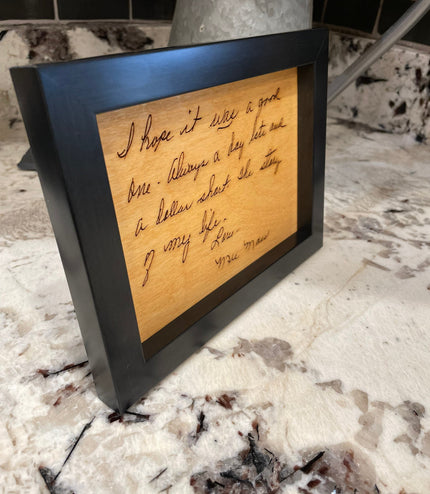 I hope it was a good
one. Always a day late and
a dollar short the story
of my life.
Love
Mee Maw